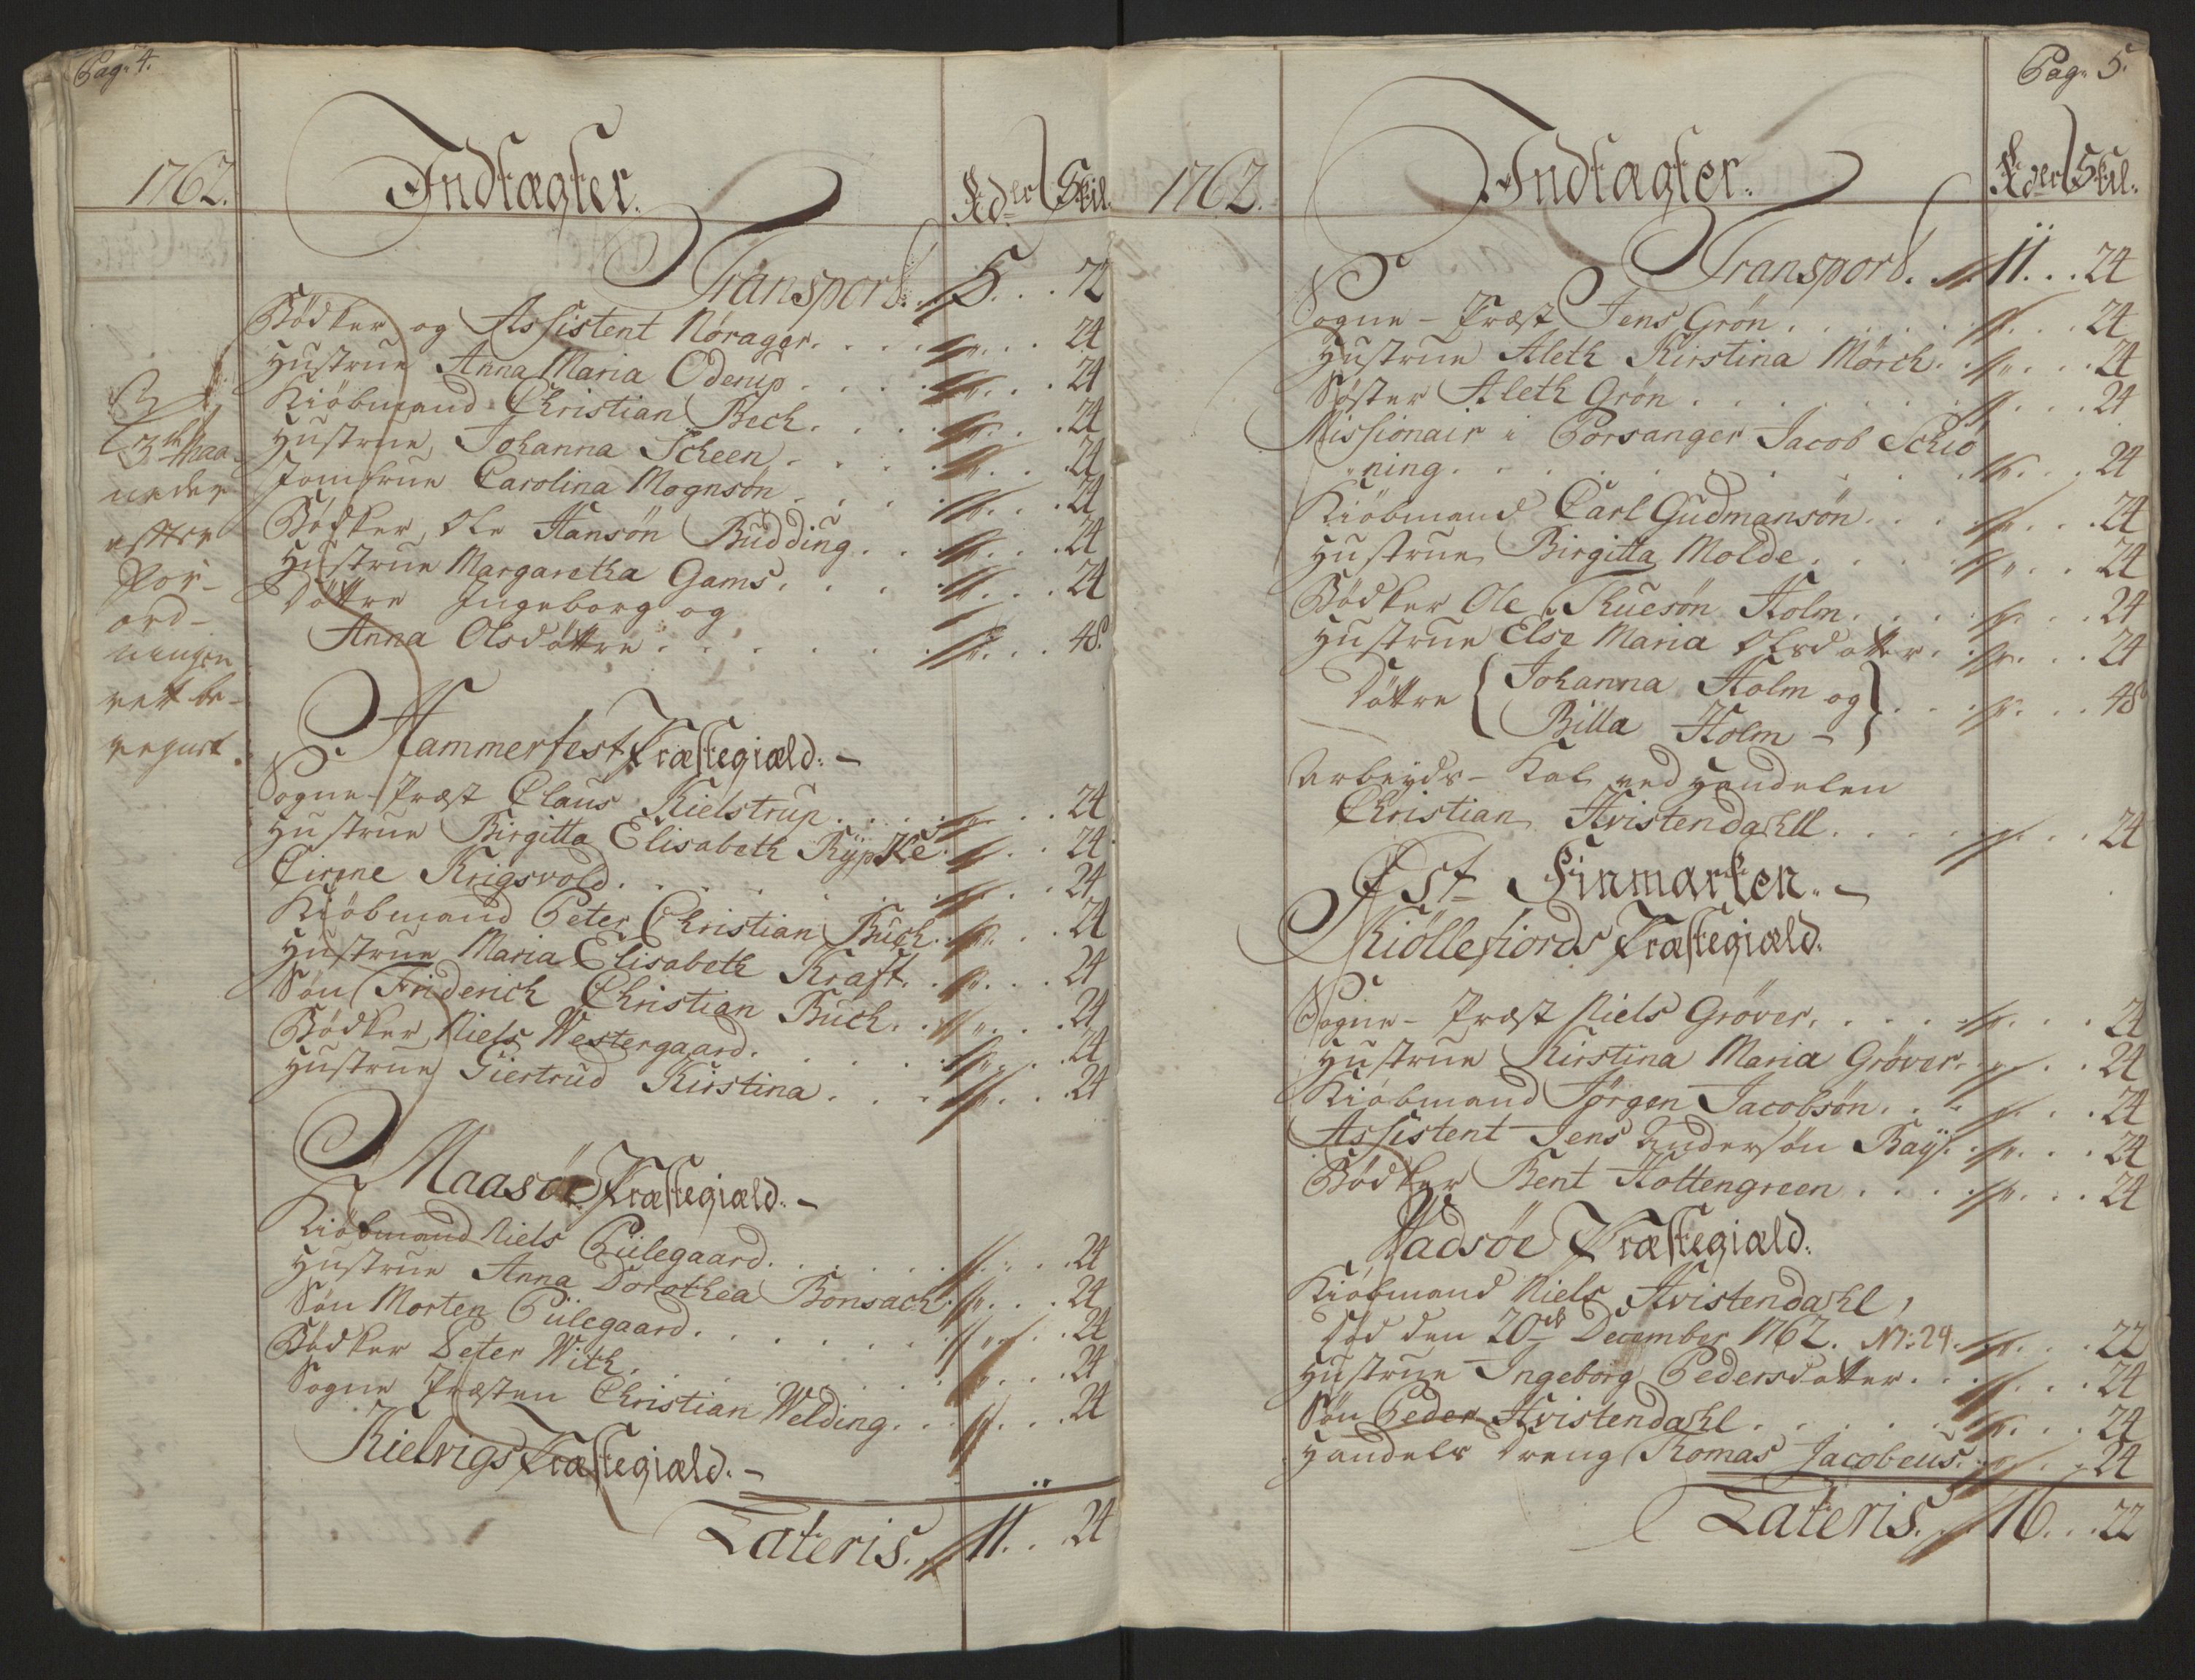 Pag: 4.
1762.
Indtægter.
Rdlr Skil.
Transport. 5 . . 72
Bödker og Assistent Nörager. . . . 24
Hustrue Anna Maria Oderup . . . . 24
Kiöbmand Christian Bech . . . . 24
Hustrue Johanna Scheen . . . . 24
Jomfrue Carolina Mognsön . . . . 24
Bödker Ole Hansön Budding . . . . 24
Hustrue Margaretha Gams . . . . 24
Döttre Ingeborg og
Anna Olsdöttre . . . . 48.
3de Maa-
neder
efter
For-
ord-
ningen
rett be-
regnet.
Hammerfest Præstegiæld. -
Sogne-Præst Claus Kielstrup . . . . 24
Hustrue Birgitta Elisabeth Rÿpke . . . 24
Cirine Krigsvold . . . . 24
Kiöbmand Peter Christian Buch . . . 24
Hustrue Maria Elisabeth Kraft . . . 24
Sön Friderich Christian Buch . . . 24
Bödker Niels Westergaard . . . . 24
Hustrue Giertrud Kirstina . . . . 24
Maasöe Præstegiæld. -
Kiöbmand Niels Piilegaard . . . . 24
Hustrue Anna Dorothea Bonsach . . . 24
Sön Morten Piilegaard . . . . 24
Bödker Peter With . . . . 24
Sogne Præsten Christian Welding . . . 24
Kielvigs Præstegiæld. -
Lateris. 11 . . 24
Pag: 5.
1762.
Indtægter.
Rdlr Skil.
Transport. 11 . . 24
Sogne-Præst Jens Grön . . . . 24
Hustrue Aleth Kirstina Mörch . . . 24
Söster Aleth Grön . . . . 24
Missionair i Porsanger Jacob Schiö
ning . . . . 24
Kiöbmand Carl Gudmansön . . . 24
Hustrue Birgitta Molde . . . . 24
Bödker Ole Thuesön Holm . . . . 24
Hustrue Else Maria Olsdatter . . . 24
Döttre { Johanna Holm og
Billa Holm - } . . . 48
Arbeyds-Karl ved Handelen
Christian Hvistendahll . . . . 24
Øst Finmarken. -
Kiöllefiords Præstegiæld.
Sogne-Præst Niels Gröver . . . . 24
Hustrue Kirstina Maria Gröver . . . 24
Kiöbmand Jörgen Jacobsön . . . 24
Assistent Jens Andersön Baÿ . . . 24
Bödker Bent Hottengreen . . . . 24
Vadsöe Præstegiæld.
Kiöbmand Niels Hvistendahl,
död den 20de December 1762. No: 24. . . . 22
Hustrue Ingeborg Pedersdatter . . . 24
Sön Peder Hvistendahl . . . . 24
Handels Dreng Thomas Jacobeus . . . 24
Lateris. 16 . . 22